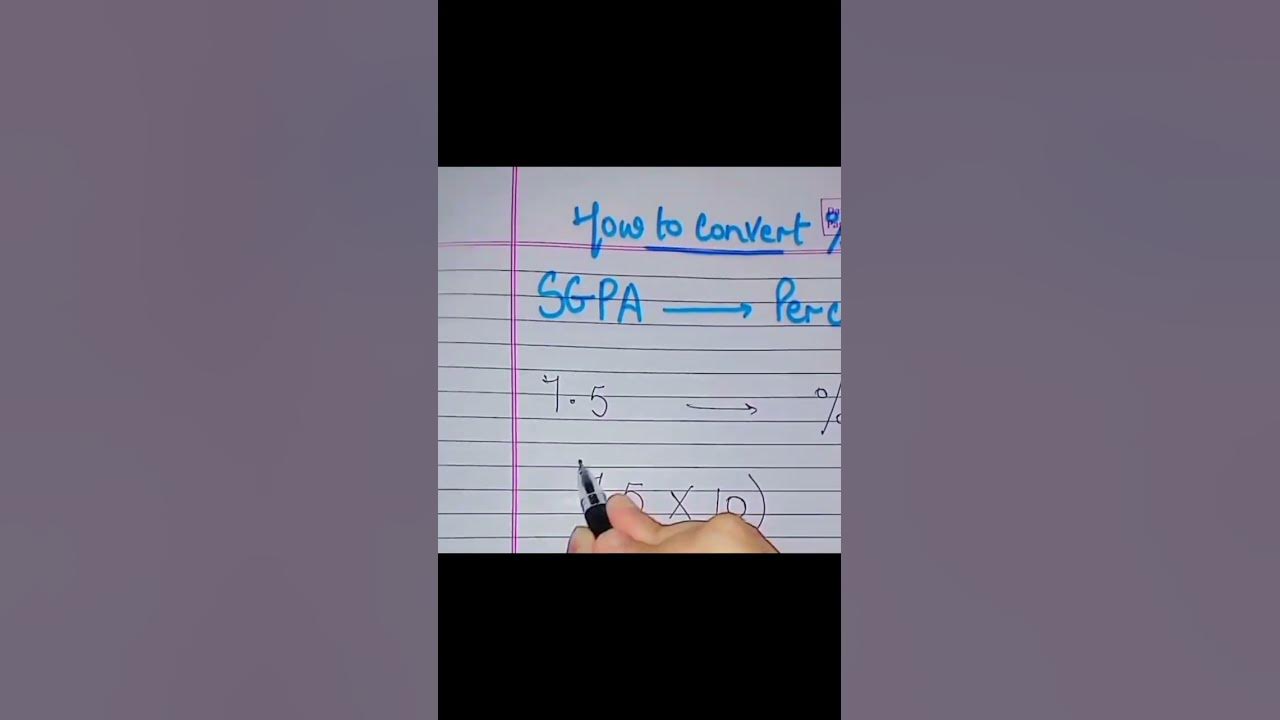 How to convert %
SGPA → Perc
7.5 → %
5 X 10)